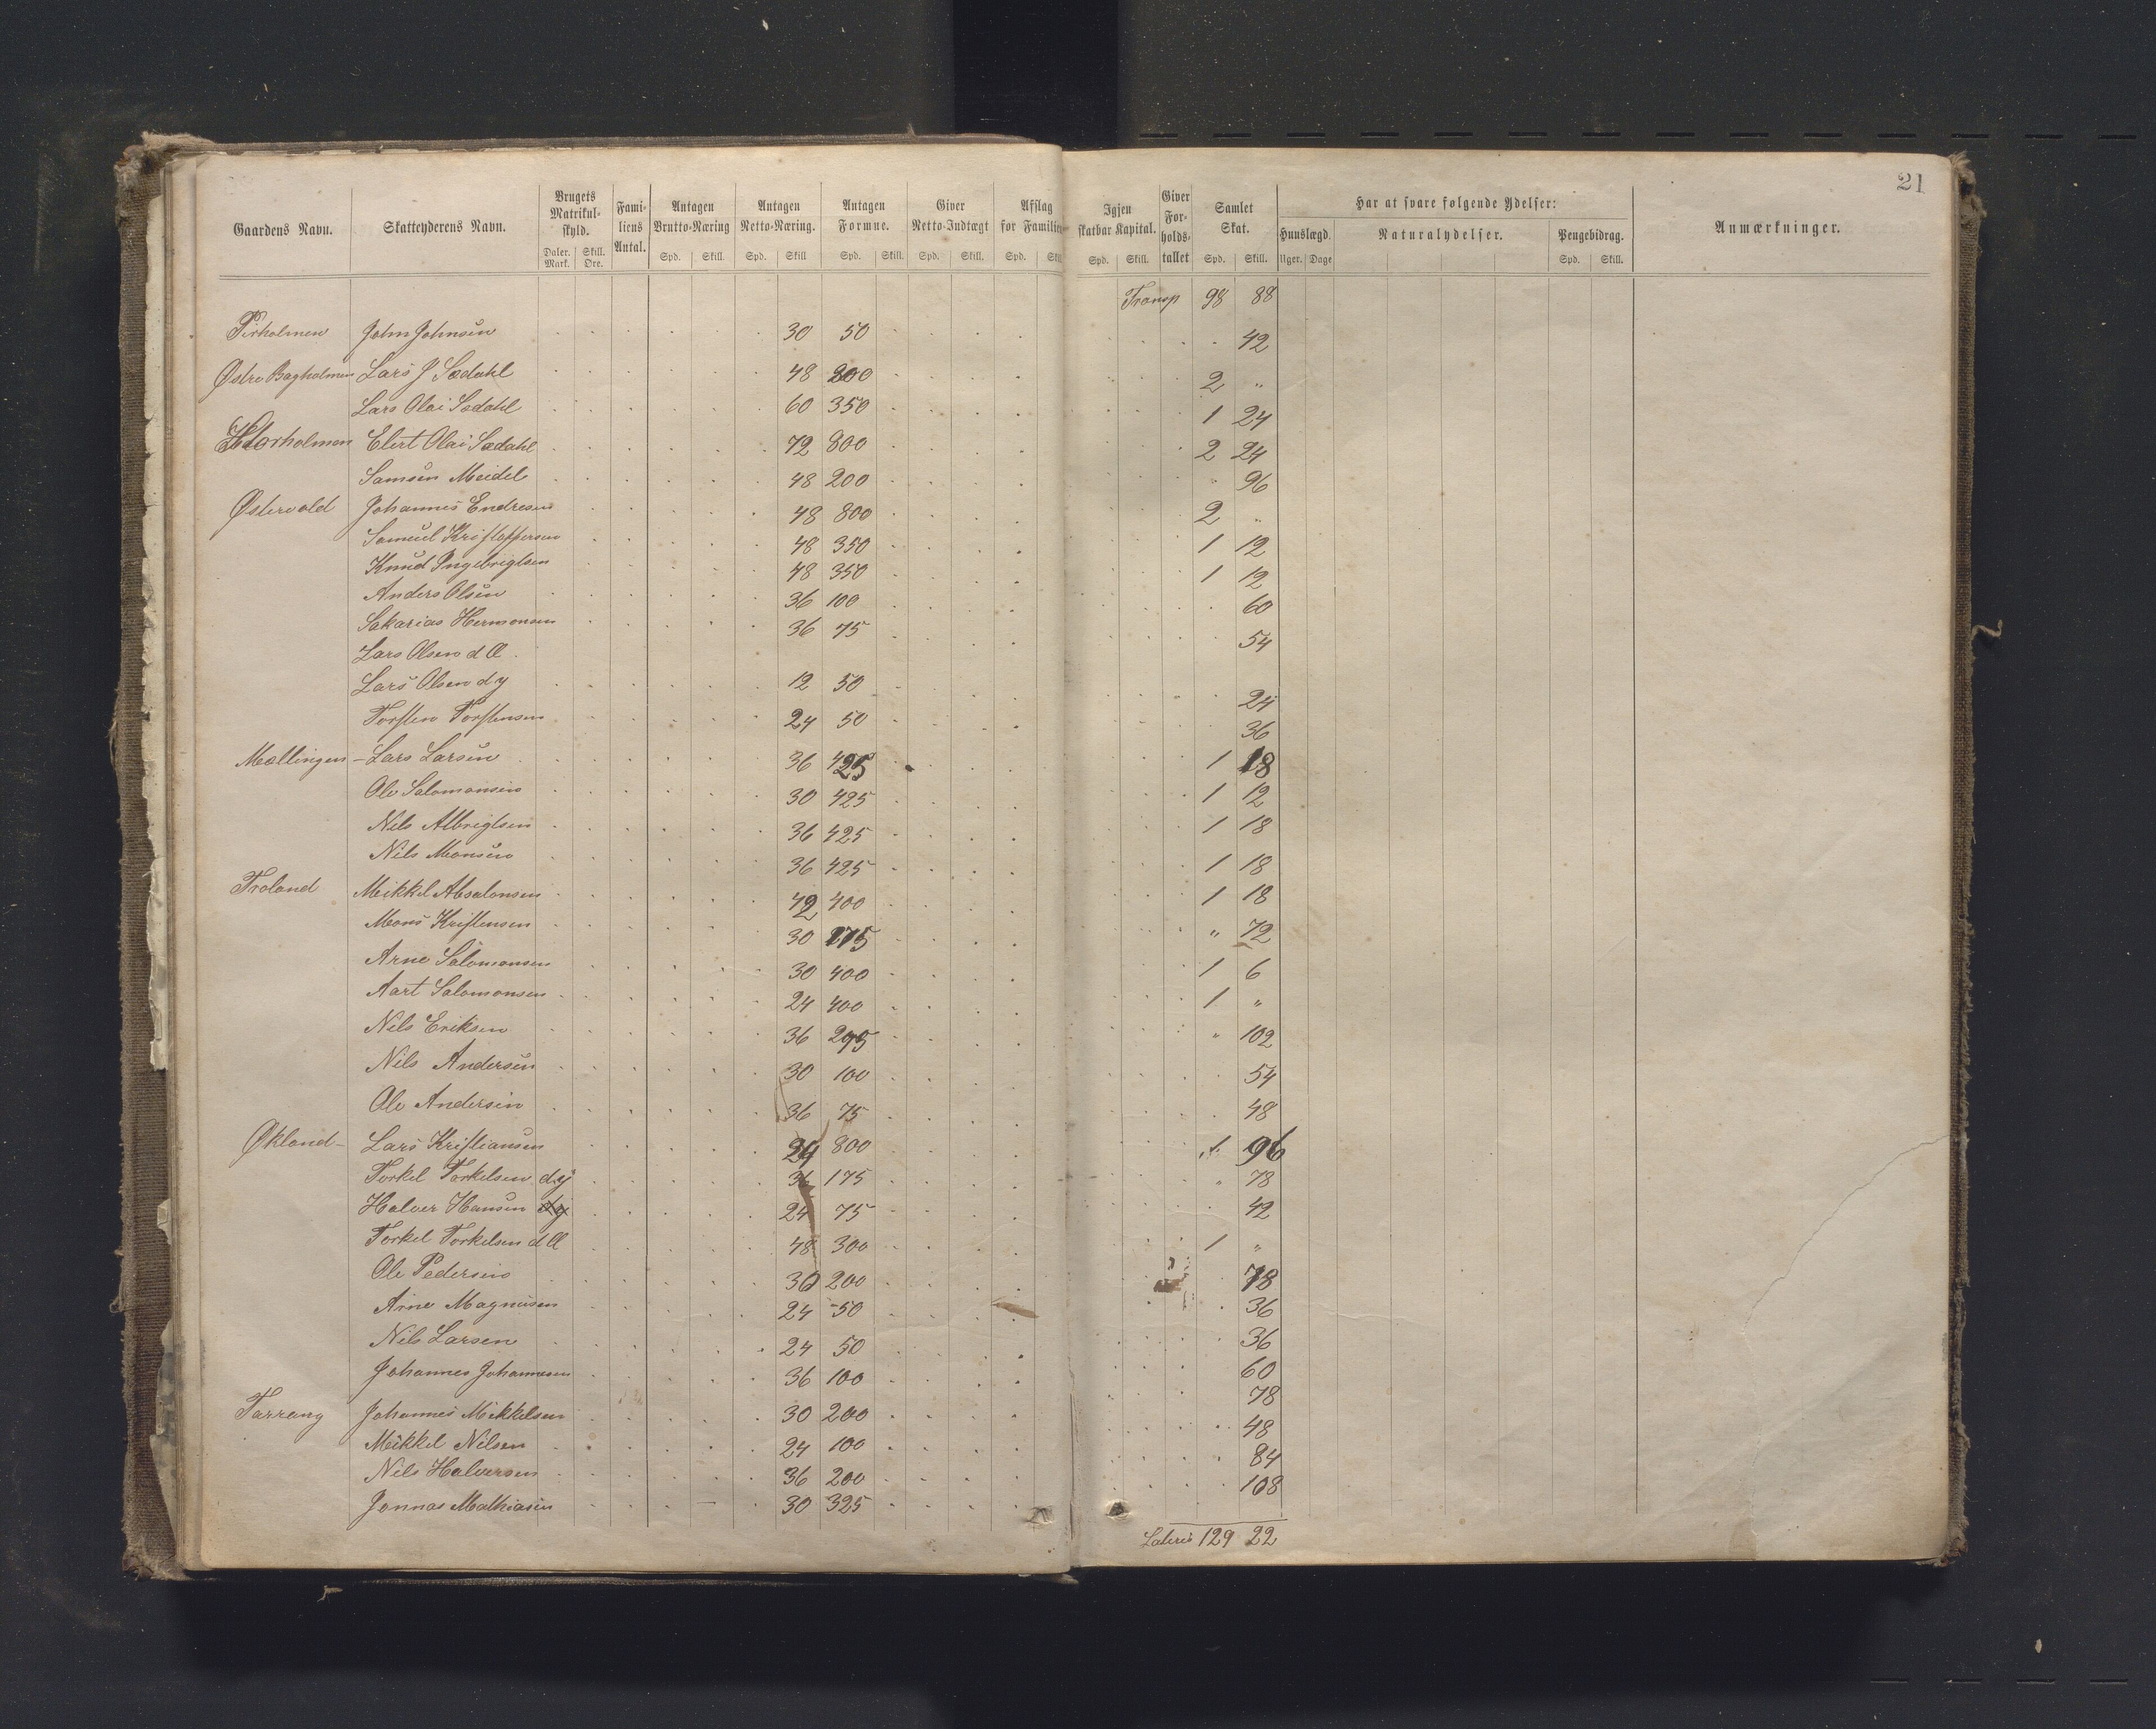 21
Gaardens Navn. Skatteyderens Navn. Brugets Matrikulskyld. Familiens Antal. Antagen Brutto-Næring Antagen Netto-Næring. Antagen Formue. Giver Netto-Indtægt Afslag for Familien Igjen skatbar Kapital. Giver Forholdstallet Samlet Skat. Har at svare følgende Ydelser: Anmærkninger.
Huuslægd. Naturalydelser. Pengebidrag.
Daler. Mark. Skill. Øre. Spd. Skill. Spd. Skill Spd. Skill. Spd. Skill. Spd. Skill Spd. Skill. Spd. Skill. Uger. Dage Spd. Skill.
Transp 98 88
Pirholmen John Johnsen 30 50 42
Østre Bagholmen Lars J Sædahl 48 800 2 "
Lars Olai Sædahl 60 350 1 24
Storholmen Elert Olai Sædahl 72 800 2 24
Samson Meidel 48 200 " 96
Østervold Johannes Endresen 48 800 2 "
Samuel Kristoffersen 48 350 1 12
Knud Ingebrigtsen 48 350 1 12
Anders Olsen 36 100 60
Sakarias Hermonsen 36 75 54
Lars Olsen d Æ
Lars Olsen d y 12 50 24
Torsten Torstensen 24 50 36
Mællingen - Lars Larsen 36 425 1 18
Ole Salomonsen 30 425 1 12
Nils Albrigtsen 36 425 1 18
Nils Monsen 36 425 1 18
Troland Mikkel Absalonsen 42 400 1 18
Mons Kristensen 30 175 " 72
Arne Salomonsen 30 400 1 6
Aart Salomonsen 24 400 1 "
Nils Eriksen 36 295 " 102
Nils Andersen 30 100 54
Ole Andersen 36 75 48
Økland - Lars Kristiansen 24 800 1 96
Torkel Torkelsen d y 36 175 " 78
Halver Hansen d y 24 75 42
Torkel Torkelsen d Æ 48 300 1 "
Ole Pedersen 30 200 78
Arne Magnusen 24 50 36
Nils Larsen 24 50 36
Johannes Johannesen 36 100 60
Tarrang Johannes Mikkelsen 30 200 78
Mikkel Nilsen 24 100 48
Nils Halversen 36 200 84
Jonnas Mathiasen 30 325 108
Lateris 129 22